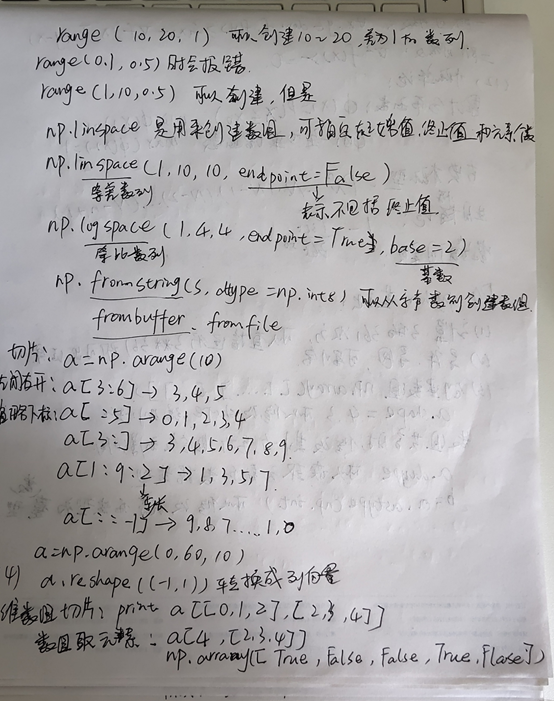 range (10, 20, 1) 可以创建10~20,差为1的数列.
range(0.1, 0.5) 时会报错
range(1,10,0.5) 可以创建,但是
np.linspace 是用来创建数组,可指定起始值.终止值和元素个数
np.linspace(1, 10, 10, endpoint=False)
等差数列 表示不包括终止值
np.logspace(1,4,4,endpoint=True, base=2)
等比数列 基数
np.fromstring(s, dtype=np.int8) 可以从字符数列创建数组
frombuffer. fromfile
切片: a=np.arange(10)
左闭右开: a[3:6]→3,4,5
省略下标: a[:5]→0,1,2,3,4
a[3:]→3,4,5,6,7,8,9.
a[1:9:2]→1,3,5,7.
步长
a[::-1]→9,8,7....1,0
a=np.arange(0,60,10)
4) a.reshape((-1,1)) 转换成列向量
维数组切片: print a[[0,1,2],[2,3,4]]
数组取元素: a[4,[2,3,4]]
np.array([True,False,False,True,Flase])